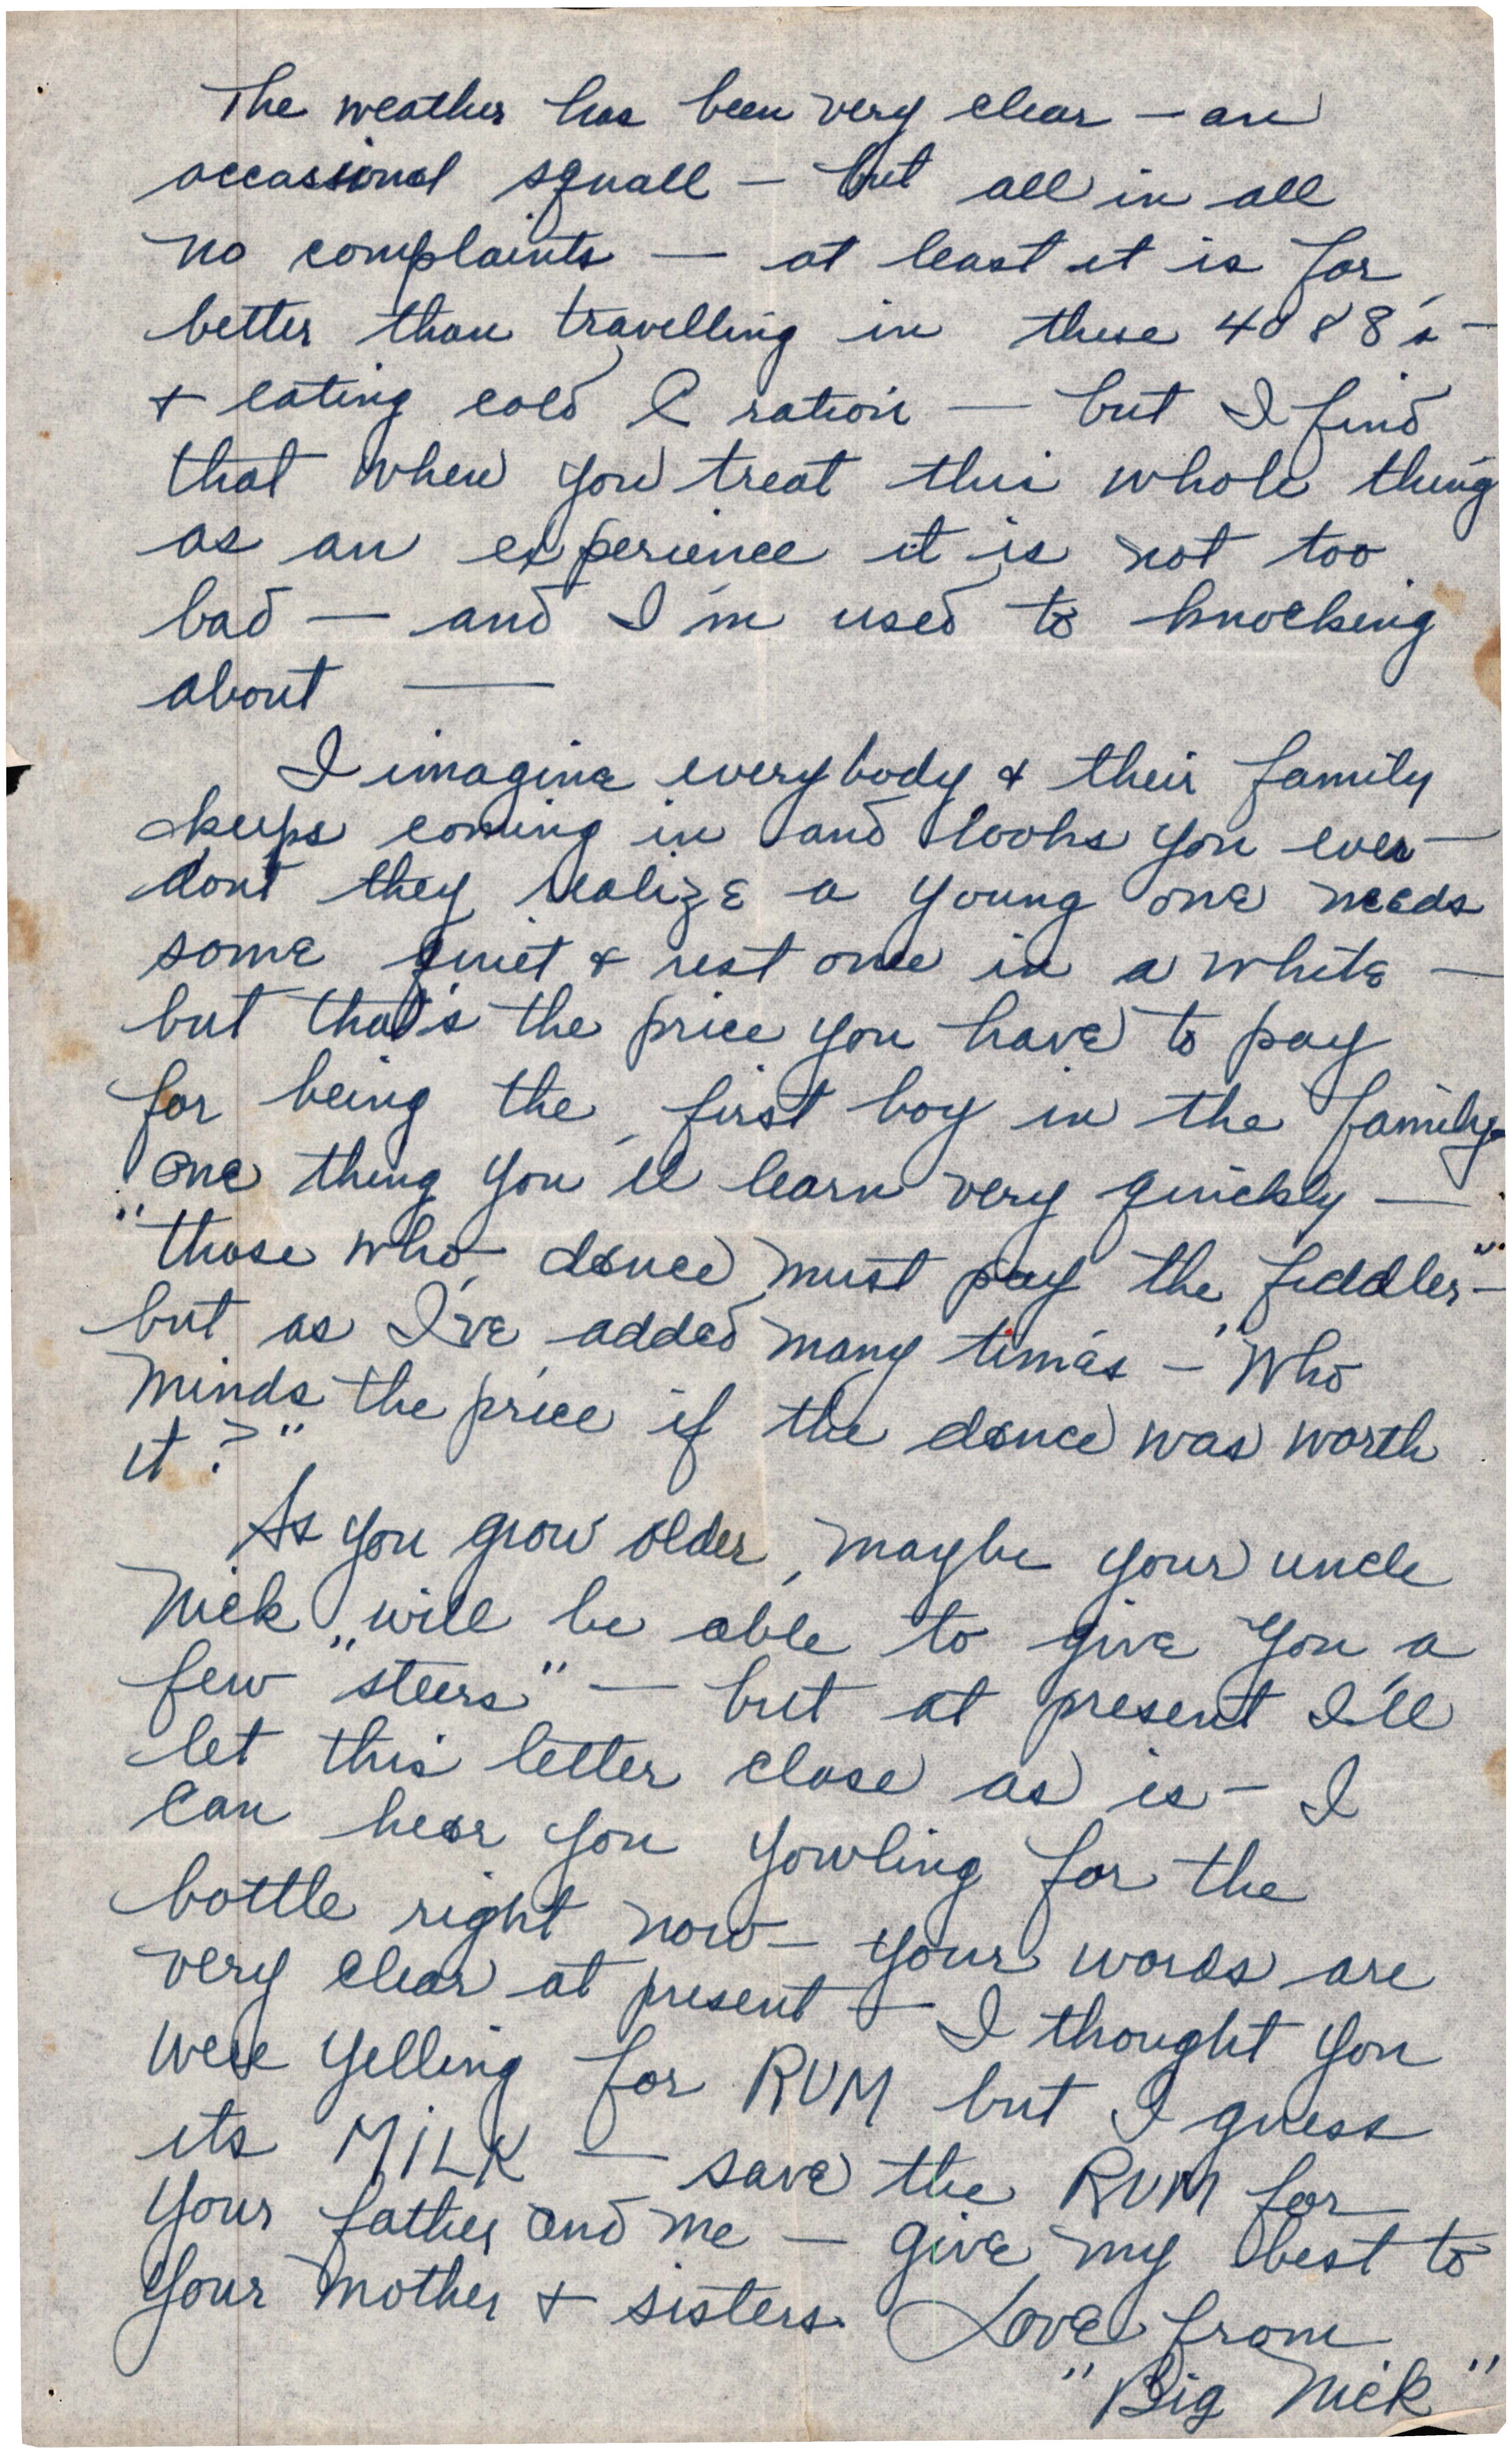 The weather has been very clear — an
occassional squall — but all in all
no complaints — at least it is far
better than travelling in these 40 & 8's —
& eating cold C ration — but I find
that when you treat this whole thing
as an experience it is not too
bad — and I'm used to knocking
about —
I imagine everybody & their family
keeps coming in and looks you over —
dont they realize a young one needs
some quiet & rest once in a while —
but that's the price you have to pay
for being the first boy in the family.
One thing you'll learn very quickly —
"those who dance must pay the fiddler" —
but as I've added many times — "Who
minds the price if the dance was worth
it?"
As you grow older, maybe your uncle
Nick will be able to give you a
few "steers" — but at present I'll
let this letter close as is — I
can hear you yowling for the
bottle right now — your words are
very clear at present — I thought you
were yelling for RUM but I guess
its MILK — save the RUM for
your father and me — give my best to
your mother & sisters. Love from
"Big Nick"